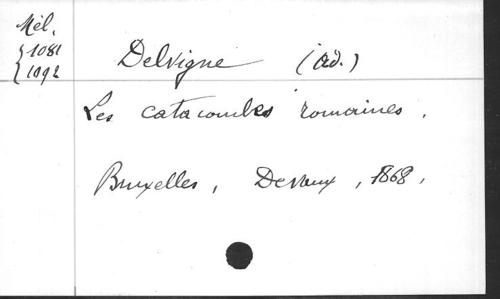 Mél.
{1081
{1092
Delvigne (Ad.)
Les catacombes romaines.
Bruxelles, Devaux, 1868.